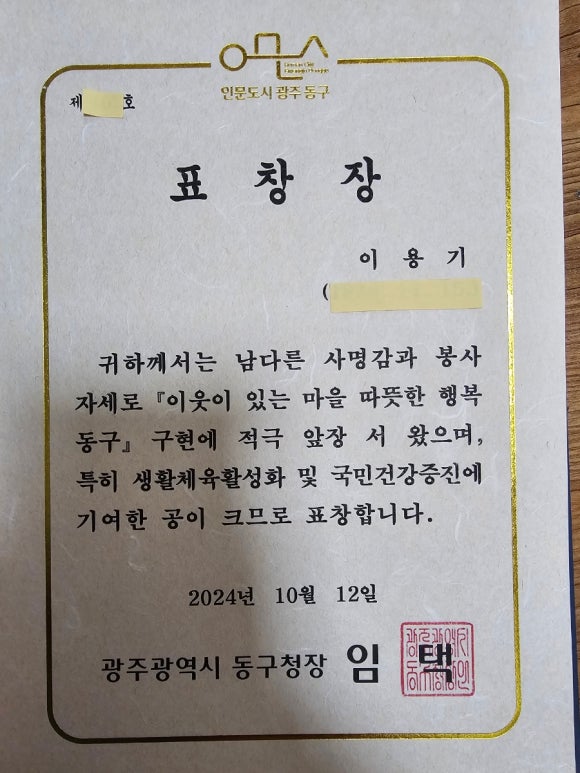 인문도시 광주 동구
제 호
표 창 장
이 용 기
(
귀하께서는 남다른 사명감과 봉사
자세로 『이웃이 있는 마을 따뜻한 행복
동구』 구현에 적극 앞장 서 왔으며,
특히 생활체육활성화 및 국민건강증진에
기여한 공이 크므로 표창합니다.
2024년 10월 12일
광주광역시 동구청장 임 택